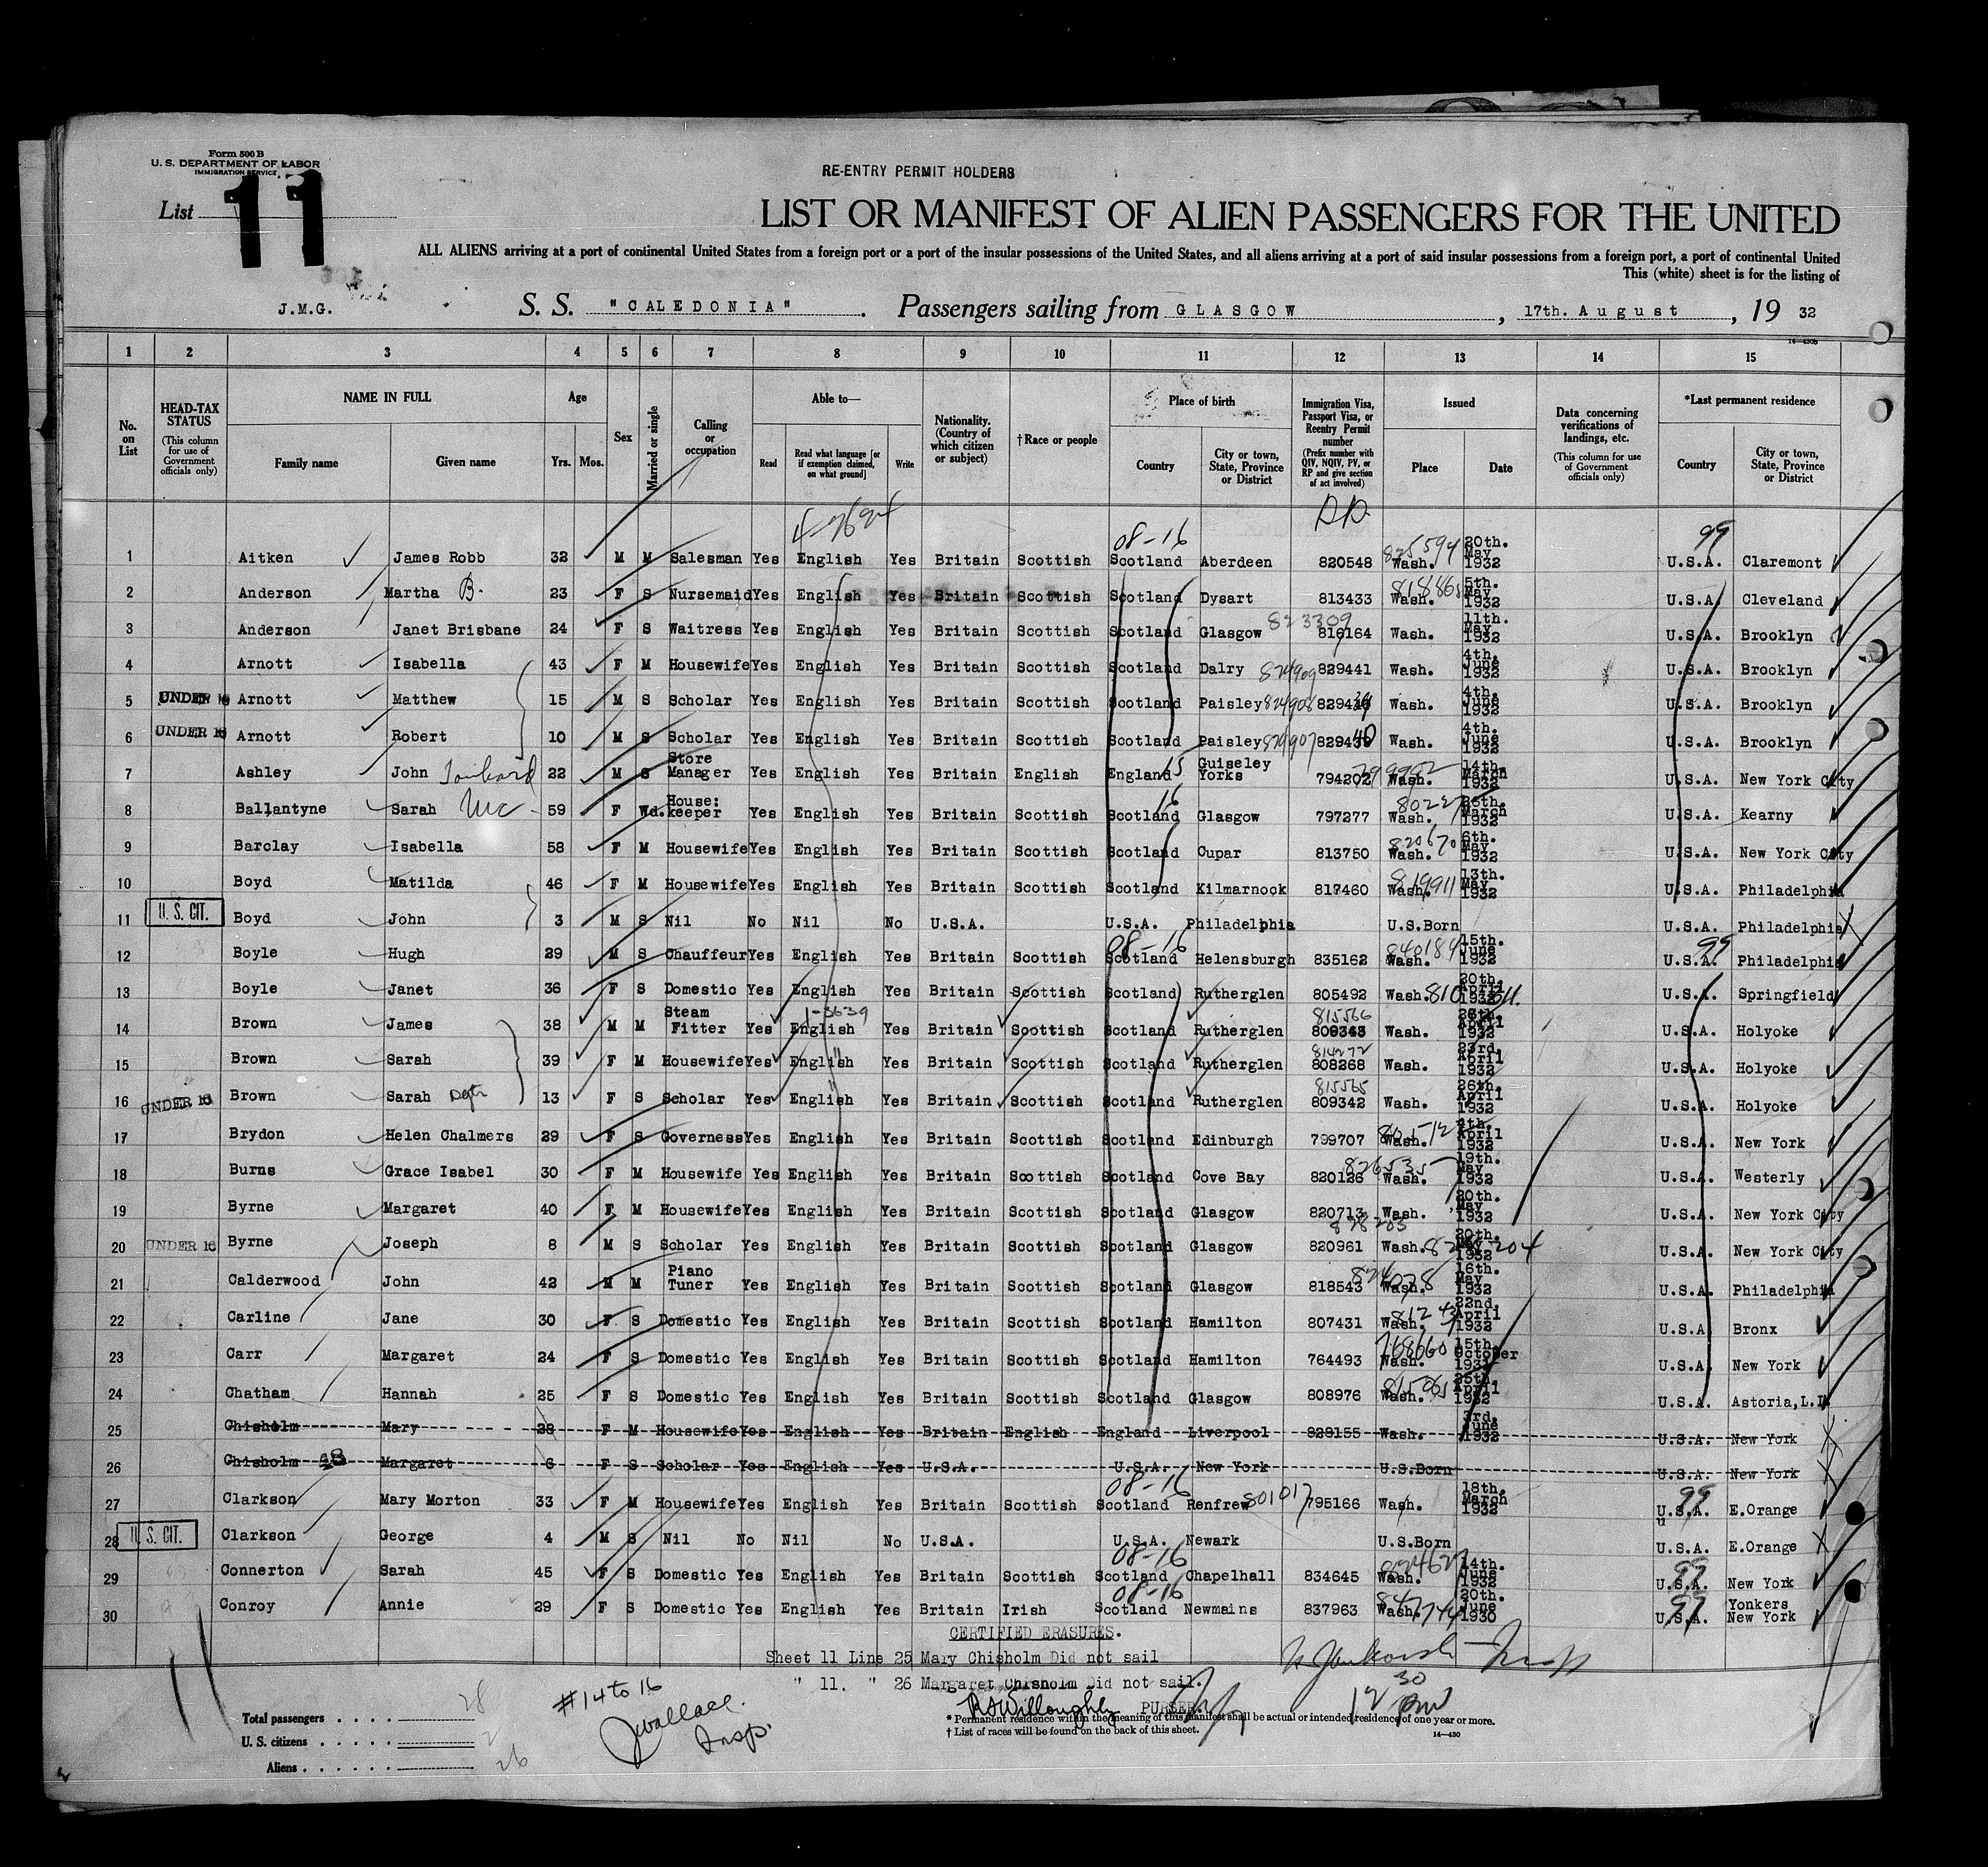 Form 500 B
U. S. DEPARTMENT OF LABOR
IMMIGRATION SERVICE
RE-ENTRY PERMIT HOLDERS
List 11
LIST OR MANIFEST OF ALIEN PASSENGERS FOR THE UNITED
ALL ALIENS arriving at a port of continental United States from a foreign port or a port of the insular possessions of the United States, and all aliens arriving at a port of said insular possessions from a foreign port, a port of continental United
This (white) sheet is for the listing of
J.M.G. S. S. "CALEDONIA" . Passengers sailing from GLASGOW , 17th. August , 19 32
14—430b
1 2 3 4 5 6 7 8 9 10 11 12 13 14 15
No. on List
HEAD-TAX STATUS (This column for use of Government officials only)
NAME IN FULL
Family name Given name
Age
Yrs. Mos.
Sex
Married or single
Calling or occupation
Able to—
Read Read what language [or if exemption claimed, on what ground] Write
Nationality. (Country of which citizen or subject)
†Race or people
Place of birth
Country City or town, State, Province or District
Immigration Visa, Passport Visa, or Reentry Permit number (Prefix number with QIV, NQIV, PV, or RP and give section of act involved)
Issued
Place Date
Data concerning verifications of landings, etc. (This column for use of Government officials only)
*Last permanent residence
Country City or town, State, Province or District
4-2624
08-16 99
1 Aitken James Robb 32 M M Salesman Yes English Yes Britain Scottish Scotland Aberdeen 820548 825594 Wash. 20th. May 1932 U.S.A. Claremont
2 Anderson Martha B. 23 F S Nursemaid Yes English Yes Britain Scottish Scotland Dysart 813433 Wash. 5th. May 1932 U.S.A. Cleveland
3 Anderson Janet Brisbane 24 F S Waitress Yes English Yes Britain Scottish Scotland Glasgow 823309 816164 Wash. 11th. May 1932 U.S.A. Brooklyn
4 Arnott Isabella 43 F M Housewife Yes English Yes Britain Scottish Scotland Dalry 824909 829441 Wash. 4th. June 1932 U.S.A. Brooklyn
5 UNDER 16 Arnott Matthew 15 M S Scholar Yes English Yes Britain Scottish Scotland Paisley 824908 Wash. 4th. June 1932 U.S.A. Brooklyn
6 UNDER 16 Arnott Robert 10 M S Scholar Yes English Yes Britain Scottish Scotland Paisley 824907 Wash. 4th. June 1932 U.S.A. Brooklyn
7 Ashley John 22 M S Store Manager Yes English Yes Britain English England 15 Guiseley Yorks 794202 Wash. 14th. March 1932 U.S.A. New York City
8 Ballantyne Sarah Mc 59 F Wd. House: keeper Yes English Yes Britain Scottish Scotland 16 Glasgow 797277 Wash. 26th. March 1932 U.S.A. Kearny
9 Barclay Isabella 58 F M Housewife Yes English Yes Britain Scottish Scotland Cupar 813750 820670 Wash. 6th. May 1932 U.S.A. New York City
10 Boyd Matilda 46 F M Housewife Yes English Yes Britain Scottish Scotland Kilmarnock 817460 819911 Wash. 13th. May 1932 U.S.A. Philadelphia
11 U. S. CIT. Boyd John 3 M S Nil No Nil No U.S.A. U.S.A. Philadelphia U.S.Born U.S.A. Philadelphia
08-16 99
12 Boyle Hugh 29 M S Chauffeur Yes English Yes Britain Scottish Scotland Helensburgh 835162 840184 Wash. 15th. June 1932 U.S.A. Philadelphia
13 Boyle Janet 36 F S Domestic Yes English Yes Britain Scottish Scotland Rutherglen 805492 Wash. 20th. April 1932 U.S.A. Springfield
14 Brown James 38 M M Steam Fitter Yes 1-3639 English Yes Britain Scottish Scotland Rutherglen 815566 809343 Wash. 26th. April 1932 U.S.A. Holyoke
15 Brown Sarah 39 F M Housewife Yes English Yes Britain Scottish Scotland Rutherglen 814272 808268 Wash. 23rd. April 1932 U.S.A. Holyoke
16 UNDER 16 Brown Sarah Dgtr 13 F S Scholar Yes English Yes Britain Scottish Scotland Rutherglen 815565 809342 Wash. 26th. April 1932 U.S.A. Holyoke
17 Brydon Helen Chalmers 29 F S Governess Yes English Yes Britain Scottish Scotland Edinburgh 799707 Wash. 4th. April 1932 U.S.A. New York
18 Burns Grace Isabel 30 F M Housewife Yes English Yes Britain Scottish Scotland Cove Bay 820126 826535 Wash. 19th. May 1932 U.S.A. Westerly
19 Byrne Margaret 40 F M Housewife Yes English Yes Britain Scottish Scotland Glasgow 820713 Wash. 20th. May 1932 U.S.A. New York City
20 UNDER 16 Byrne Joseph 8 M S Scholar Yes English Yes Britain Scottish Scotland Glasgow 828203 820961 Wash. 20th. May 1932 U.S.A. New York City
21 Calderwood John 42 M M Piano Tuner Yes English Yes Britain Scottish Scotland Glasgow 818543 824078 Wash. 16th. May 1932 U.S.A. Philadelphia
22 Carline Jane 30 F S Domestic Yes English Yes Britain Scottish Scotland Hamilton 807431 Wash. 22nd. April 1932 U.S.A. Bronx
23 Carr Margaret 24 F S Domestic Yes English Yes Britain Scottish Scotland Hamilton 764493 768660 Wash. 15th. October 1931 U.S.A. New York
24 Chatham Hannah 25 F S Domestic Yes English Yes Britain Scottish Scotland Glasgow 808976 Wash. 25th. April 1932 U.S.A. Astoria, L.I.
25 Chisholm Mary 28 F M Housewife Yes English Yes Britain English England Liverpool 829155 Wash. 3rd. June 1932 U.S.A. New York
26 Chisholm 28 Margaret 6 F S Scholar Yes English Yes U.S.A. U.S.A. New York U.S.Born U.S.A. New York
08-16 99
27 Clarkson Mary Morton 33 F M Housewife Yes English Yes Britain Scottish Scotland Renfrew 801017 795166 Wash. 18th. March 1932 U.S.A. E.Orange
28 U. S. CIT. Clarkson George 4 M S Nil No Nil No U.S.A. U.S.A. Newark U.S.Born U.S.A. E.Orange
08-16 99
29 Connerton Sarah 45 F S Domestic Yes English Yes Britain Scottish Scotland Chapelhall 834645 Wash. 14th. June 1932 U.S.A. New York
08-16 99
30 Conroy Annie 29 F S Domestic Yes English Yes Britain Irish Scotland Newmains 837963 Wash. 20th. June 1930 U.S.A. Yonkers New York
CERTIFIED ERASURES.
Sheet 11 Line 25 Mary Chisholm Did not sail
" 11. " 26 Margaret Chisholm Did not sail.
#14 to 16
JWallace.
Insp.
RSWilloughby PURSER.
12 30 PM
Total passengers 28
U. S. citizens 2
Aliens 26
* Permanent residence within the meaning of this manifest shall be actual or intended residence of one year or more.
† List of races will be found on the back of this sheet.
14—430